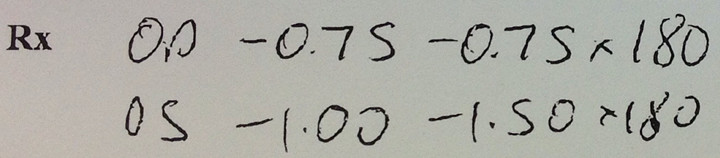 Rx O.D -0.75 -0.75 x 180
OS -1.00 -1.50 x180